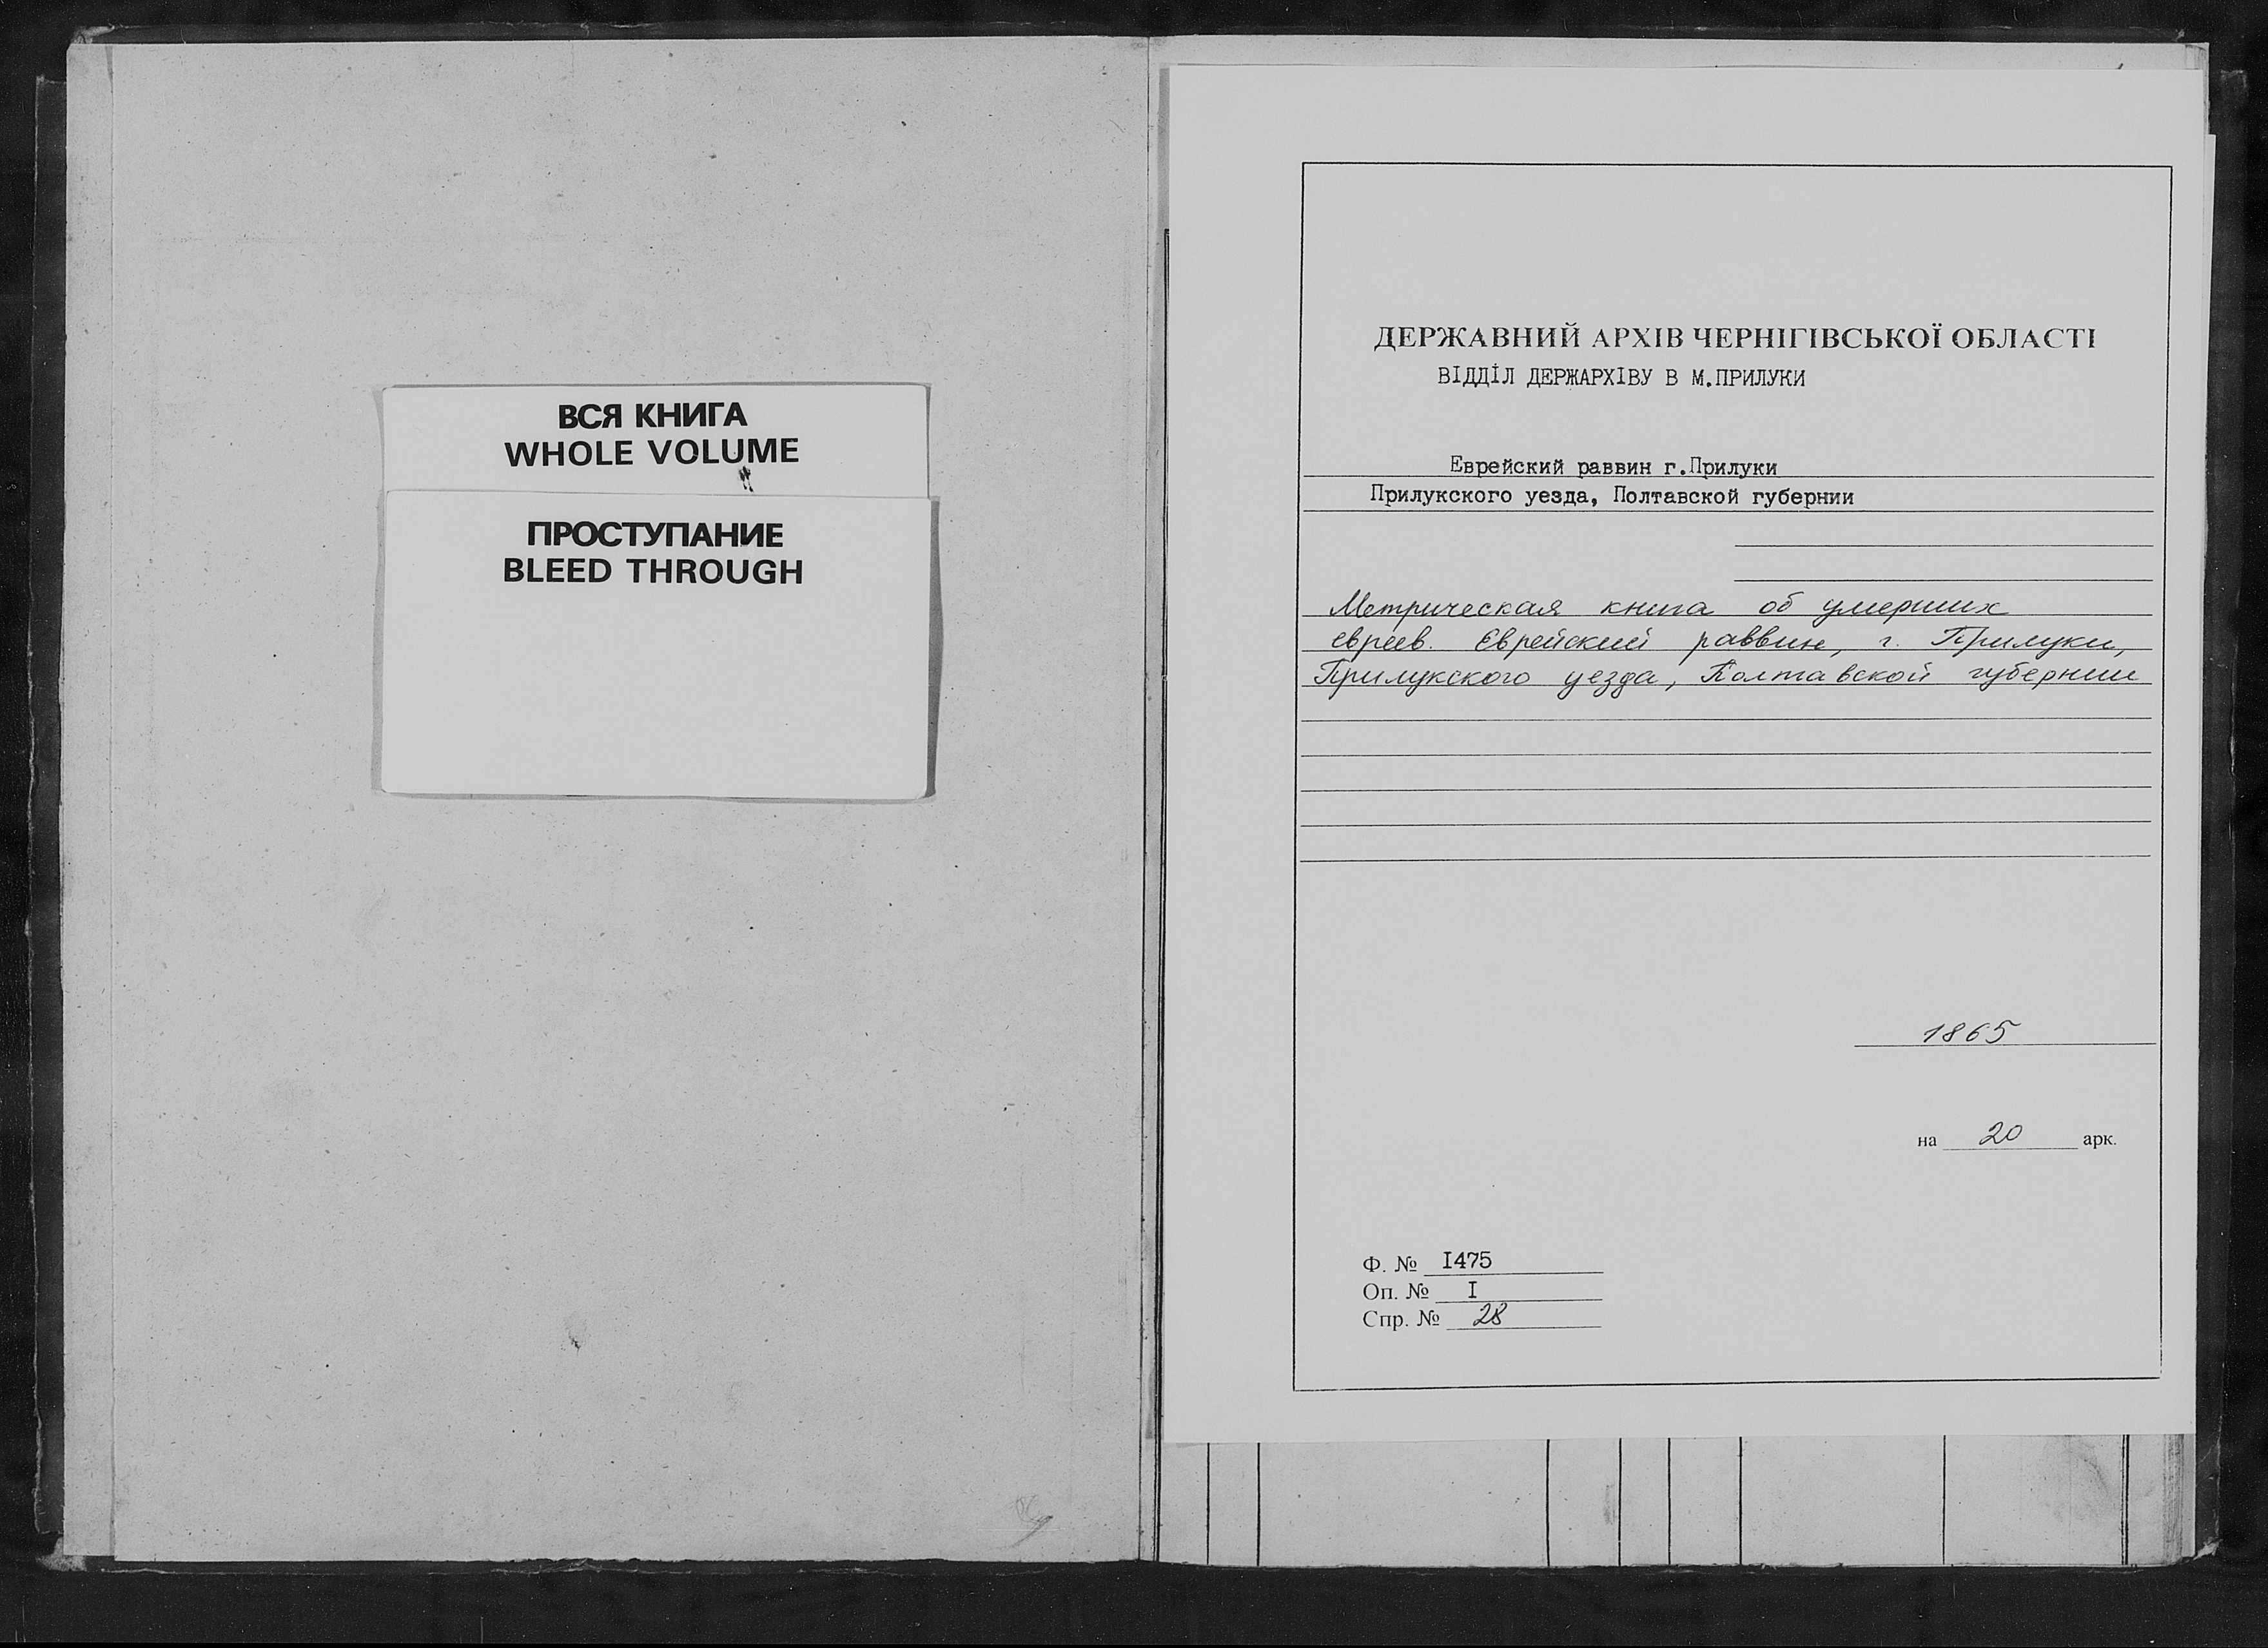 ВСЯ КНИГА
WHOLE VOLUME
ПРОСТУПАНИЕ
BLEED THROUGH
ДЕРЖАВНИЙ АРХІВ ЧЕРНІГІВСЬКОЇ ОБЛАСТІ
ВІДДІЛ ДЕРЖАРХІВУ В М.ПРИЛУКИ
Еврейский раввин г.Прилуки
Прилукского уезда, Полтавской губернии
Метрическая книга об умерших
евреев. Еврейский раввин, г. Прилуки,
Прилукского уезда, Полтавской губернии
1865
на 20 арк.
Ф. № I475
Оп. № I
Спр. № 28